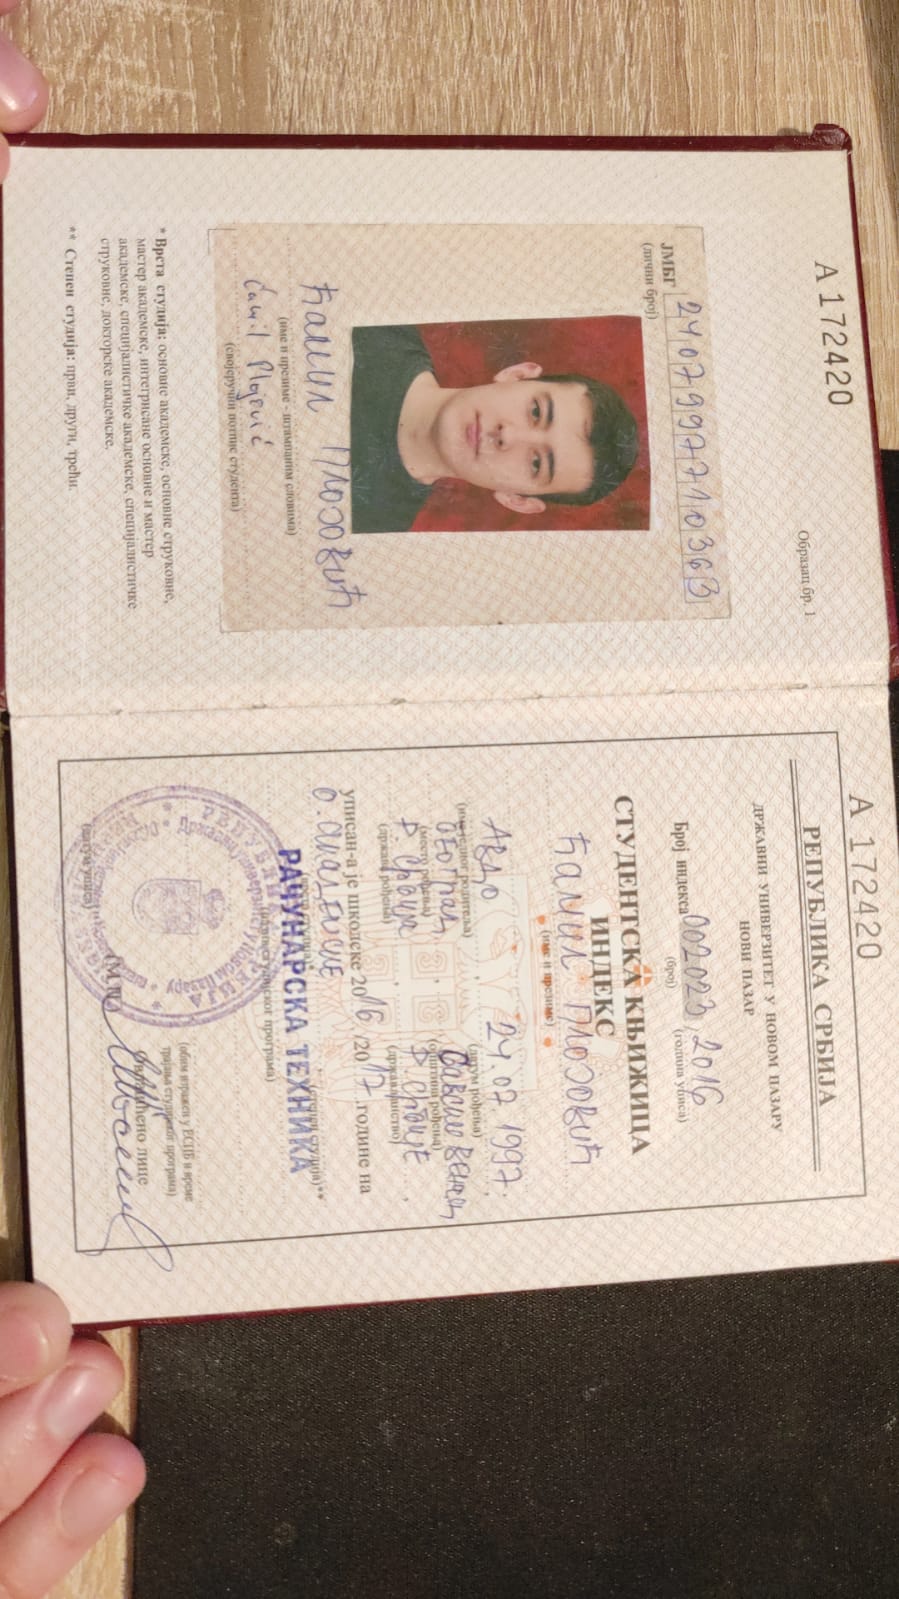 А 172420
Образац бр. 1
ЈМБГ 2407997710363
(лични број)
Ћамил Пложовић
(име и презиме - штампаним словима)
Ćamil Plojević
(својеручни потпис студента)
* Врста студија: основне академске, основне струковне,
мастер академске, интегрисане основне и мастер
академске, специјалистичке академске, специјалистичке
струковне, докторске академске.
** Степен студија: први, други, трећи.
А 172420
РЕПУБЛИКА СРБИЈА
ДРЖАВНИ УНИВЕРЗИТЕТ У НОВОМ ПАЗАРУ
НОВИ ПАЗАР
Број индекса 002023, 2016
(број) (година уписа)
СТУДЕНТСКА КЊИЖИЦА
ИНДЕКС
Ћамил Пложовић
(име и презиме)
Авдо, 24.07.1997.
(име једног родитеља) (датум рођења)
Београд, Савски венац
(место рођења) (општина рођења)
Р. Србија, Р. Србије,
(држава рођења) (држављанство)
уписан-а је школске 2016/2017 године на
(степен студија)**
РАЧУНАРСКА ТЕХНИКА
(назив студијског програма)
(обим изражен у ЕСПБ и време
трајања студијског програма)
(М.П.) Овлашћено лице
(датум уписа)